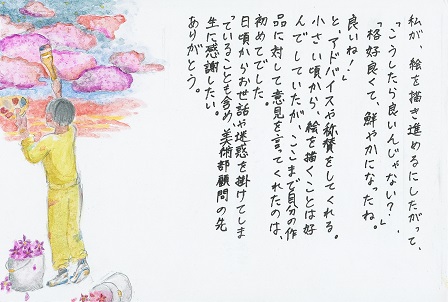 私が、絵を描き進めるにしたがって、
「こうしたら良いんじゃない？」、
「格好良くて、鮮やかになったね。
良いね！」
と、アドバイスや称賛をしてくれる。
小さい頃から、絵を描くことは好
んでしていたが、ここまで自分の作
品に対して意見を言ってくれたのは、
初めてでした。
日頃からお世話や迷惑を掛けてしま
っていることも含め、美術部顧問の先
生に感謝したい。
ありがとう。